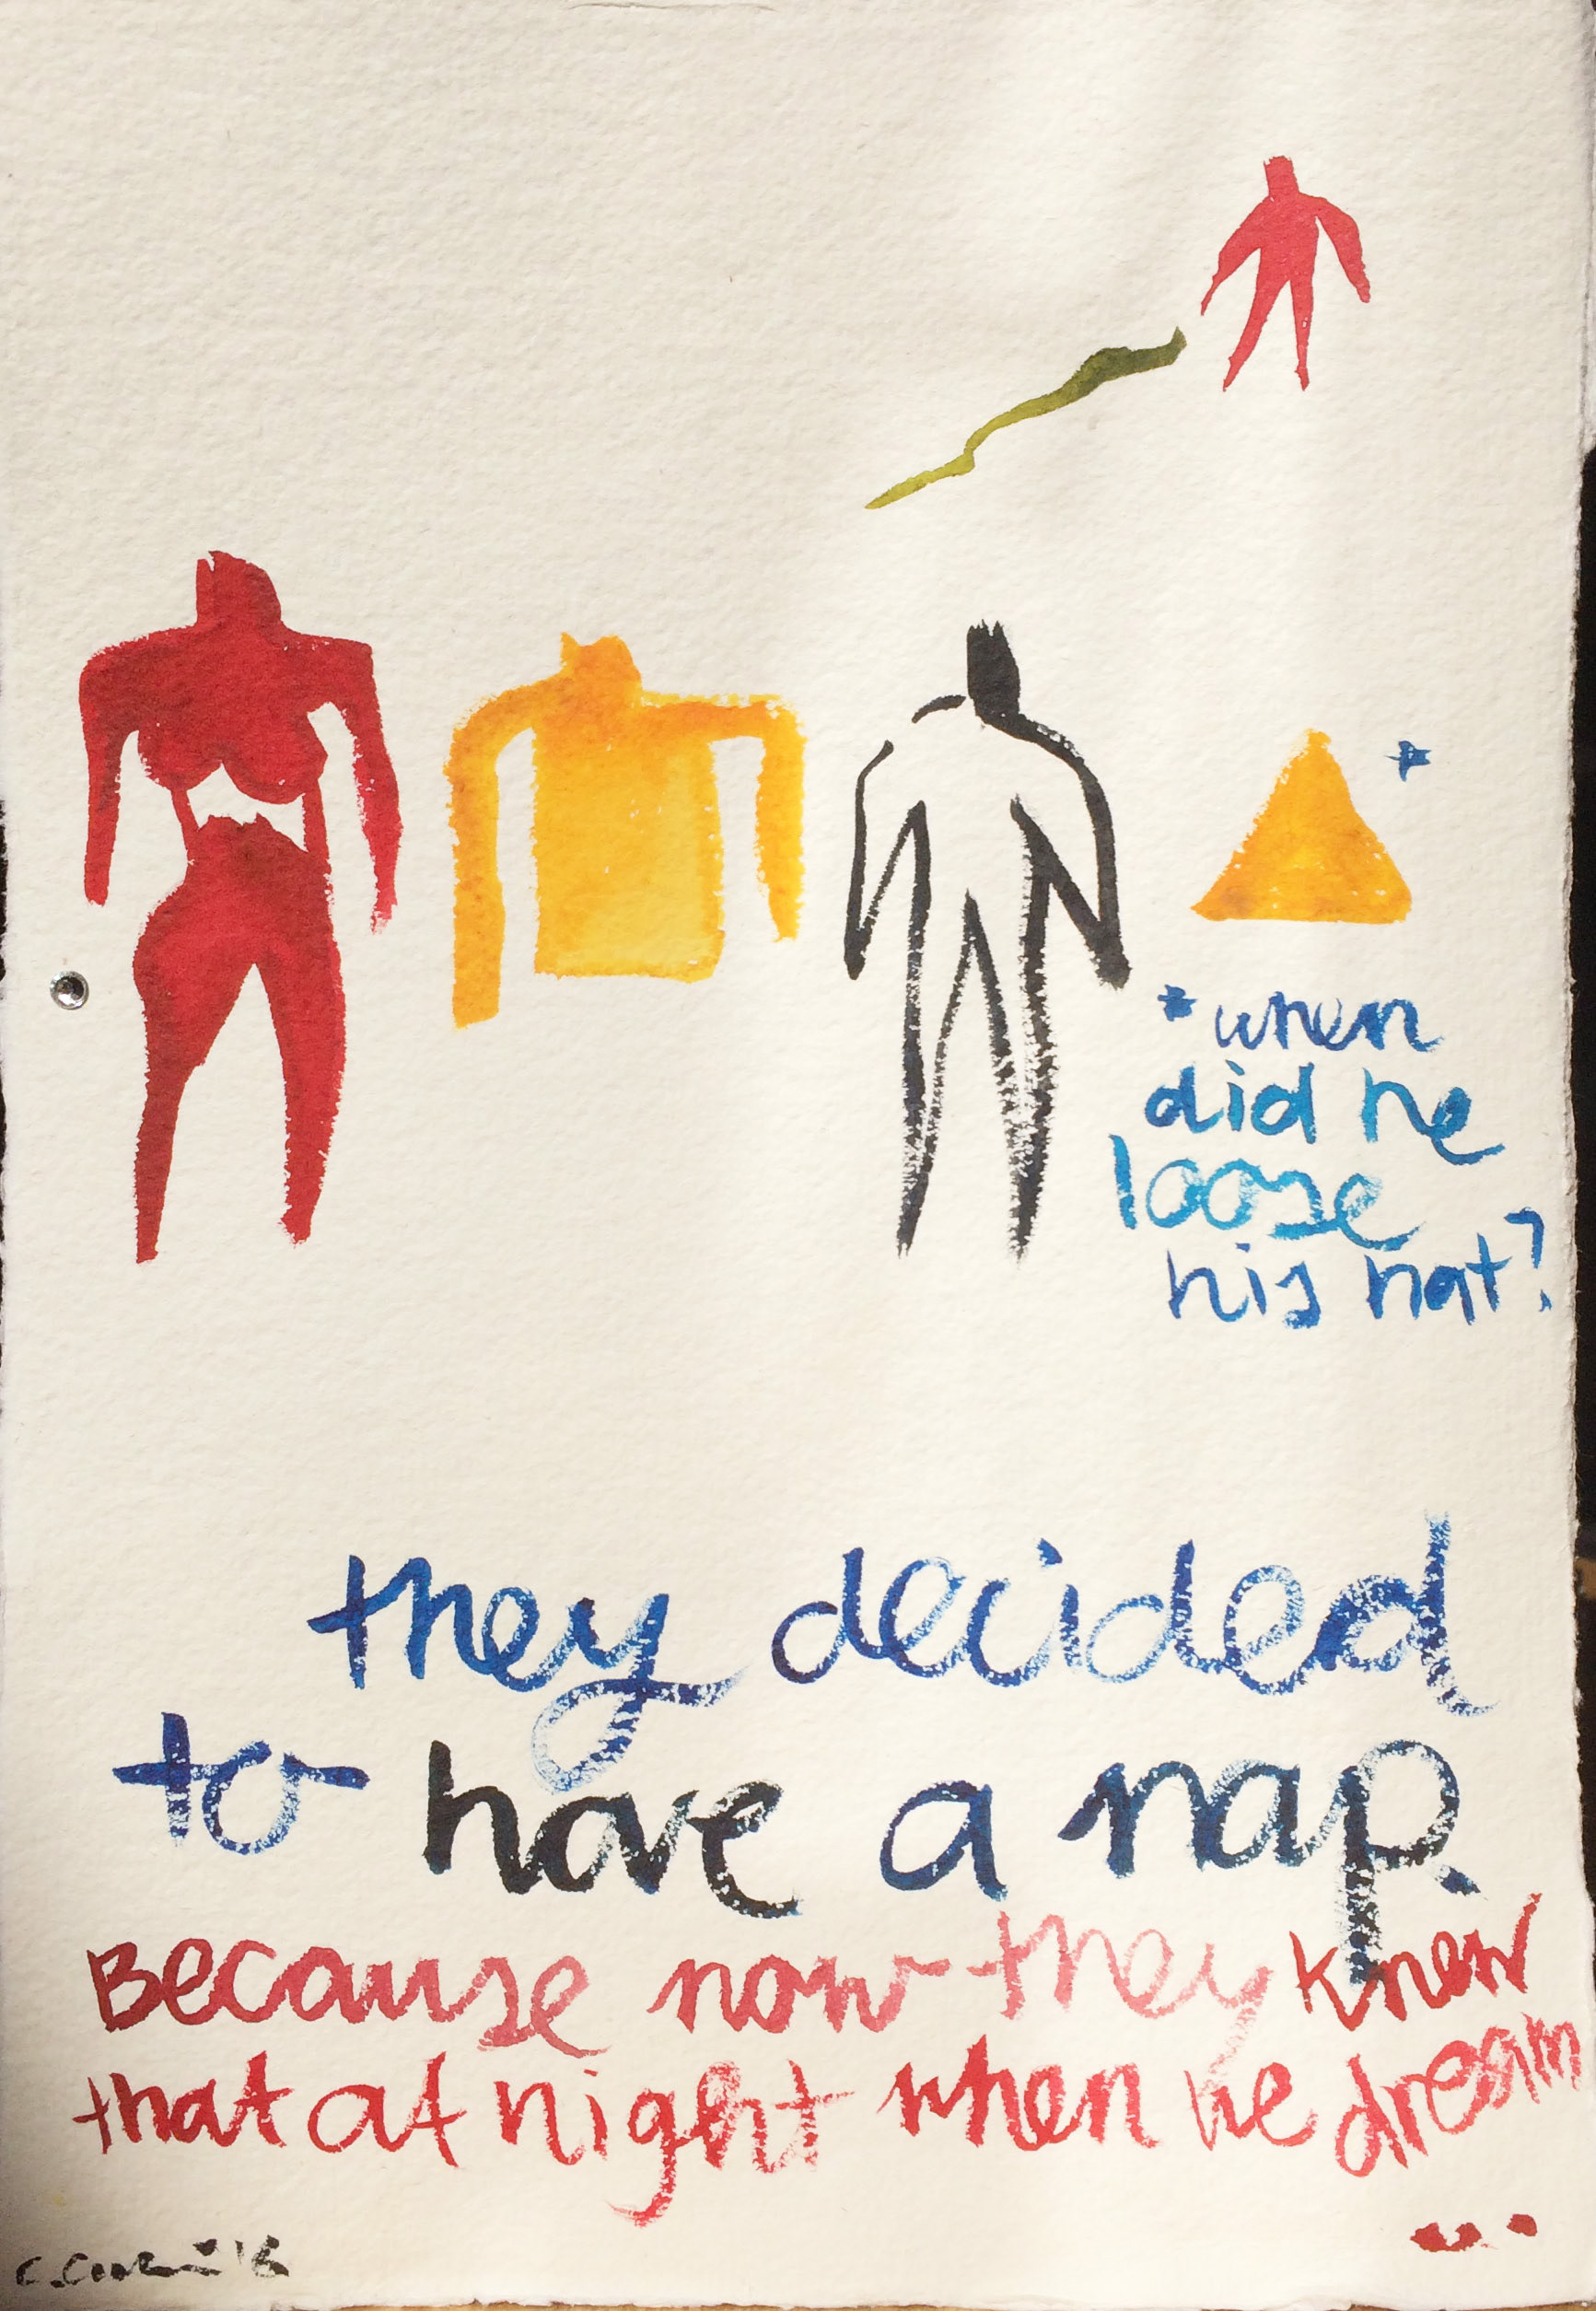 *
*when
did he
loose
his hat?
they decided
to have a nap.
Because now they knew
that at night when we dream
...